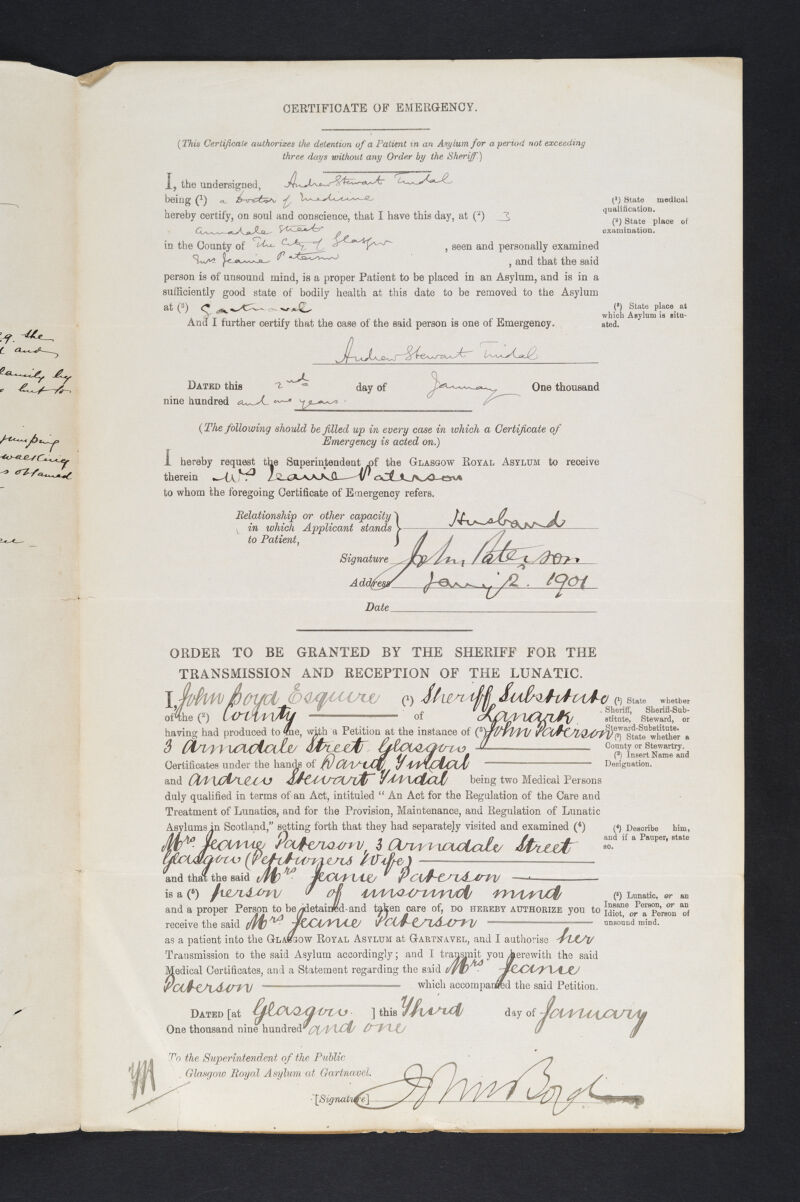 g. the
t and
family by
but to
jumping
walking
s obtained
CERTIFICATE OF EMERGENCY.
(This Certificate authorizes the detention of a Patient in an Asylum for a period not exceeding
three days without any Order by the Sheriff)
I, the undersigned, Andrew Stewart Tindal
being (¹) a Doctor of Medicine
(¹) State medical
qualification.
hereby certify, on soul and conscience, that I have this day, at (²) 3
(²) State place of
examination.
Armadale Street
in the County of The City of Glasgow , seen and personally examined
Mrs Jeanie Paterson , and that the said
person is of unsound mind, is a proper Patient to be placed in an Asylum, and is in a
sufficiently good state of bodily health at this date to be removed to the Asylum
at (³) Gartnavel
(³) State place at
which Asylum is situ-
ated.
And I further certify that the case of the said person is one of Emergency.
Andrew Stewart Tindal
DATED this 2nd day of January One thousand
nine hundred and one years.
(The following should be filled up in every case in which a Certificate of
Emergency is acted on.)
I hereby request the Superintendent of the GLASGOW ROYAL ASYLUM to receive
therein Mrs Jeanie Paterson
to whom the foregoing Certificate of Emergency refers.
Relationship or other capacity
in which Applicant stands
to Patient, } Husband
Signature John Paterson
Address Jany 2. 1901
Date
ORDER TO BE GRANTED BY THE SHERIFF FOR THE
TRANSMISSION AND RECEPTION OF THE LUNATIC.
I, John Boyd Esquire (¹) Sheriff Substitute
of the (²) County of Lanark
(¹) State whether
Sheriff, Sheriff-Sub-
stitute, Steward, or
Steward-Substitute.
having had produced to me, with a Petition at the instance of (³) John Paterson
3 Armadale Street Glasgow
(²) State whether a
County or Stewartry.
(³) Insert Name and
Designation.
Certificates under the hands of David Tindal
and Andrew Stewart Tindal being two Medical Persons
duly qualified in terms of an Act, intituled "An Act for the Regulation of the Care and
Treatment of Lunatics, and for the Provision, Maintenance, and Regulation of Lunatic
Asylums in Scotland," setting forth that they had separately visited and examined (⁴)
(⁴) Describe him,
and if a Pauper, state
so.
Mrs Jeanie Paterson, 3 Armadale Street
Glasgow (Petitioners Wife)
and that the said Mrs Jeanie Paterson
is a (⁵) person of unsound mind
(⁵) Lunatic, or an
Insane Person, or an
Idiot, or a Person of
unsound mind.
and a proper Person to be detained and taken care of, DO HEREBY AUTHORIZE you to
receive the said Mrs Jeanie Paterson
as a patient into the GLASGOW ROYAL ASYLUM at GARTNAVEL, and I authorise her
Transmission to the said Asylum accordingly; and I transmit you herewith the said
Medical Certificates, and a Statement regarding the said Mrs Jeanie
Paterson which accompanied the said Petition.
DATED [at Glasgow. ] this Third day of January
One thousand nine hundred and one
To the Superintendent of the Public
Glasgow Royal Asylum at Gartnavel.
[Signature] John Boyd